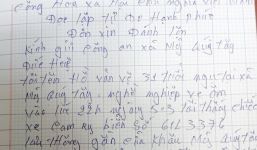 Cộng Hòa Xã Hội Chủ Nghĩa Việt
Độc lập Tự Do Hạnh phúc
Đơn xin Đánh lộn
Kính gửi công an xã Mỹ Quý tây
Đức Huế
tôi tên Hồ văn về 31 tuổi ngụ tại xã
Mỹ Quý tây nghề nghiệp xe ôm
Vào lúc 22h ngày 5-3 tôi thấy chiếc
xe Cam ry biển số 61L 3376
tây Hồng gần cửa khẩu Mỹ Quý tây